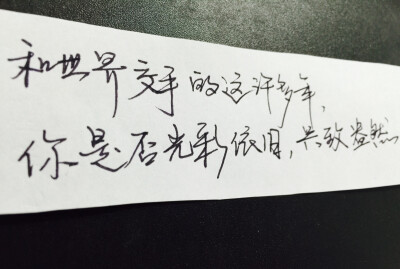 和世界交手的这许多年,
你是否光彩依旧,兴致盎然